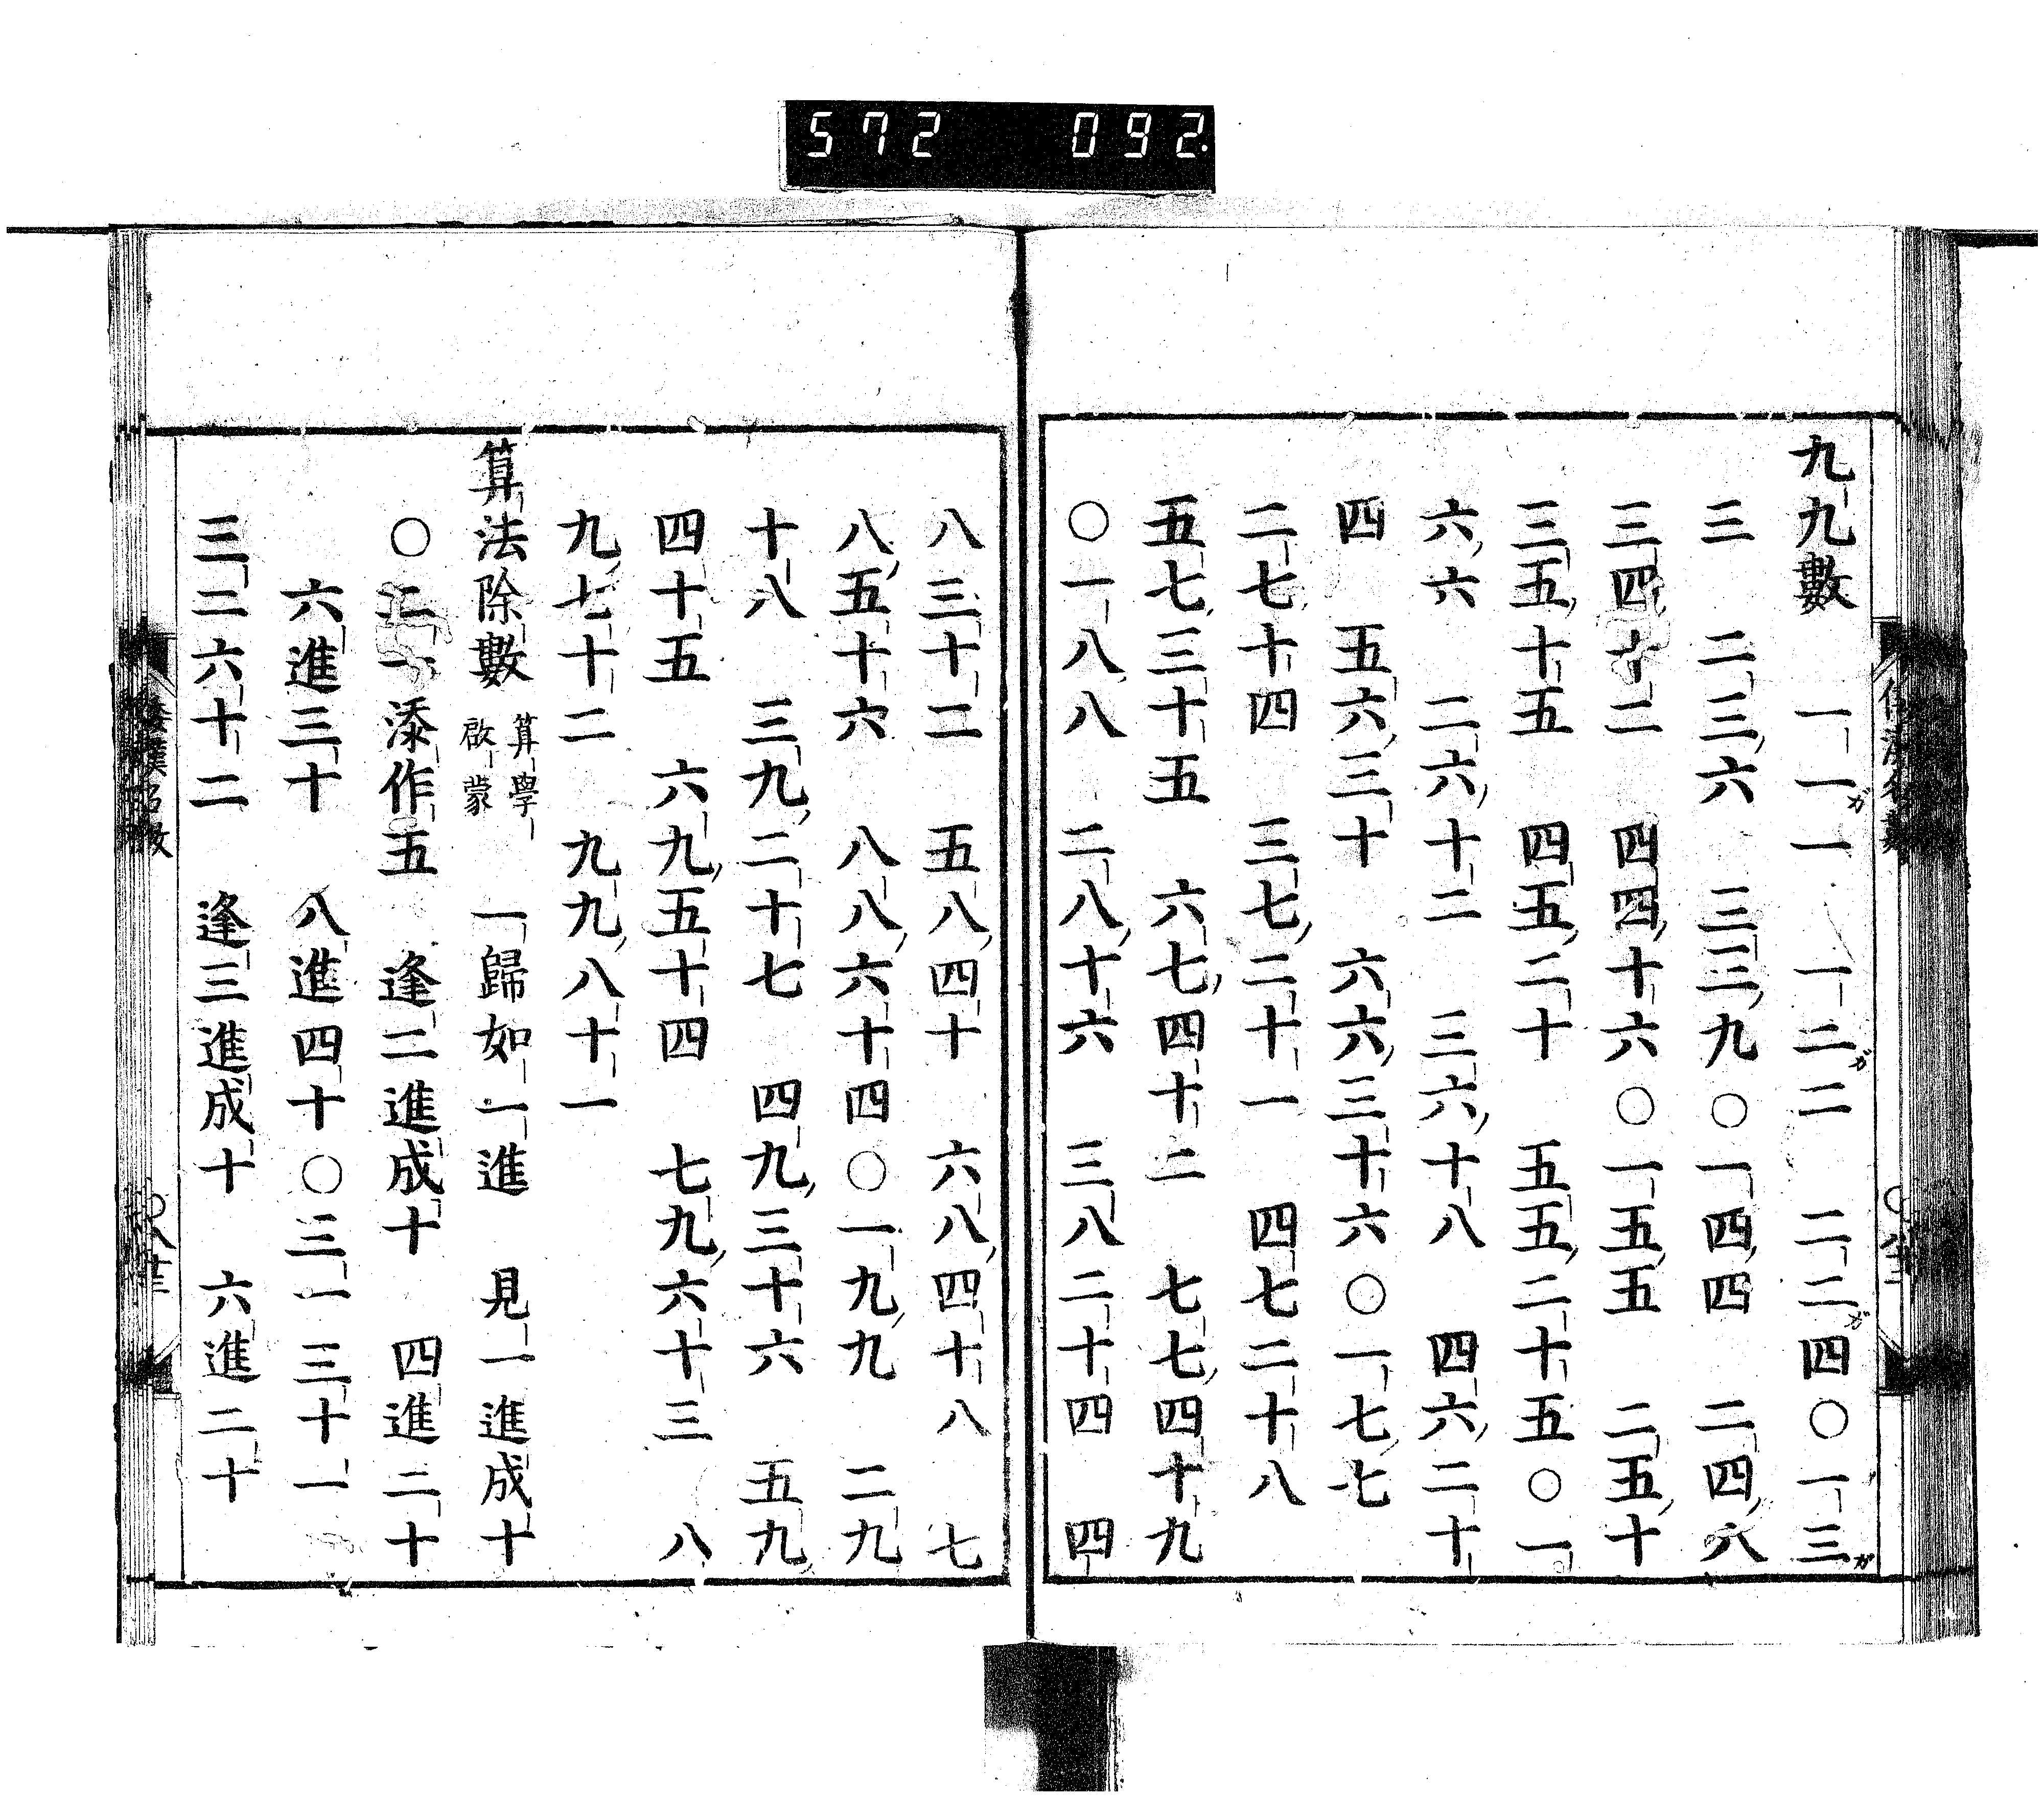 572 092.
九九數 一一ガ一 一二ガ二 二二ガ四〇一三ガ
三 二三六 三三九〇一四四 二四八
三四十二 四四十六〇一五五 二五十
三五十五 四五二十 五五二十五〇一
六六 二六十二 三六十八 四六二十
四 五六三十 六六三十六〇一七七
二七十四 三七二十一 四七二十八
五七三十五 六七四十二 七七四十九
〇一八八 二八十六 三八二十四 四
八三十二 五八四十 六八四十八 七
八五十六 八八六十四〇一九九 二九
十八 三九二十七 四九三十六 五九
四十五 六九五十四 七九六十三 八
九七十二 九九八十一
算法除數 算學啟蒙 一歸如一進 見一進成十
〇二一添作五 逢二進成十 四進二十
六進三十 八進四十〇三一三十一
三二六十二 逢三進成十 六進二十